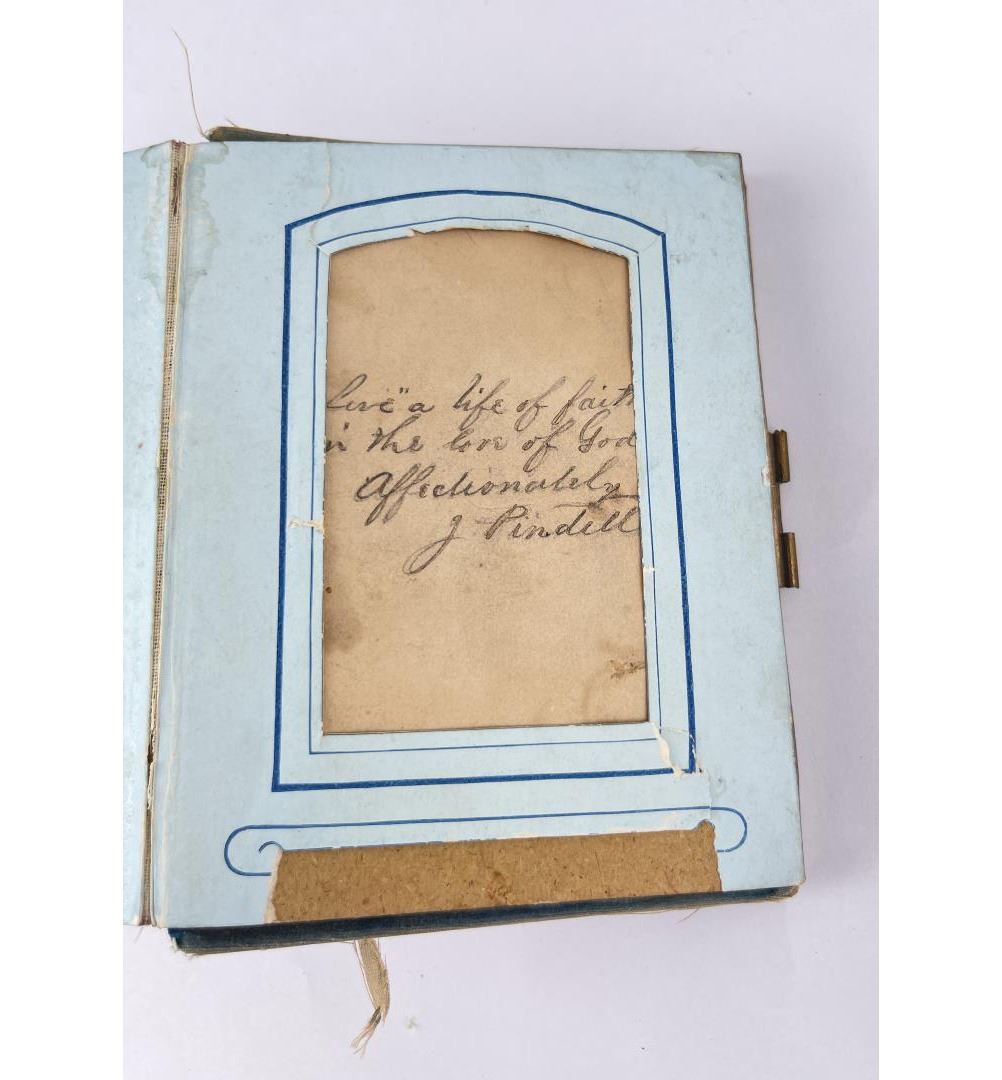 live" a life of faith
in the love of God
Affectionately
J Pindell